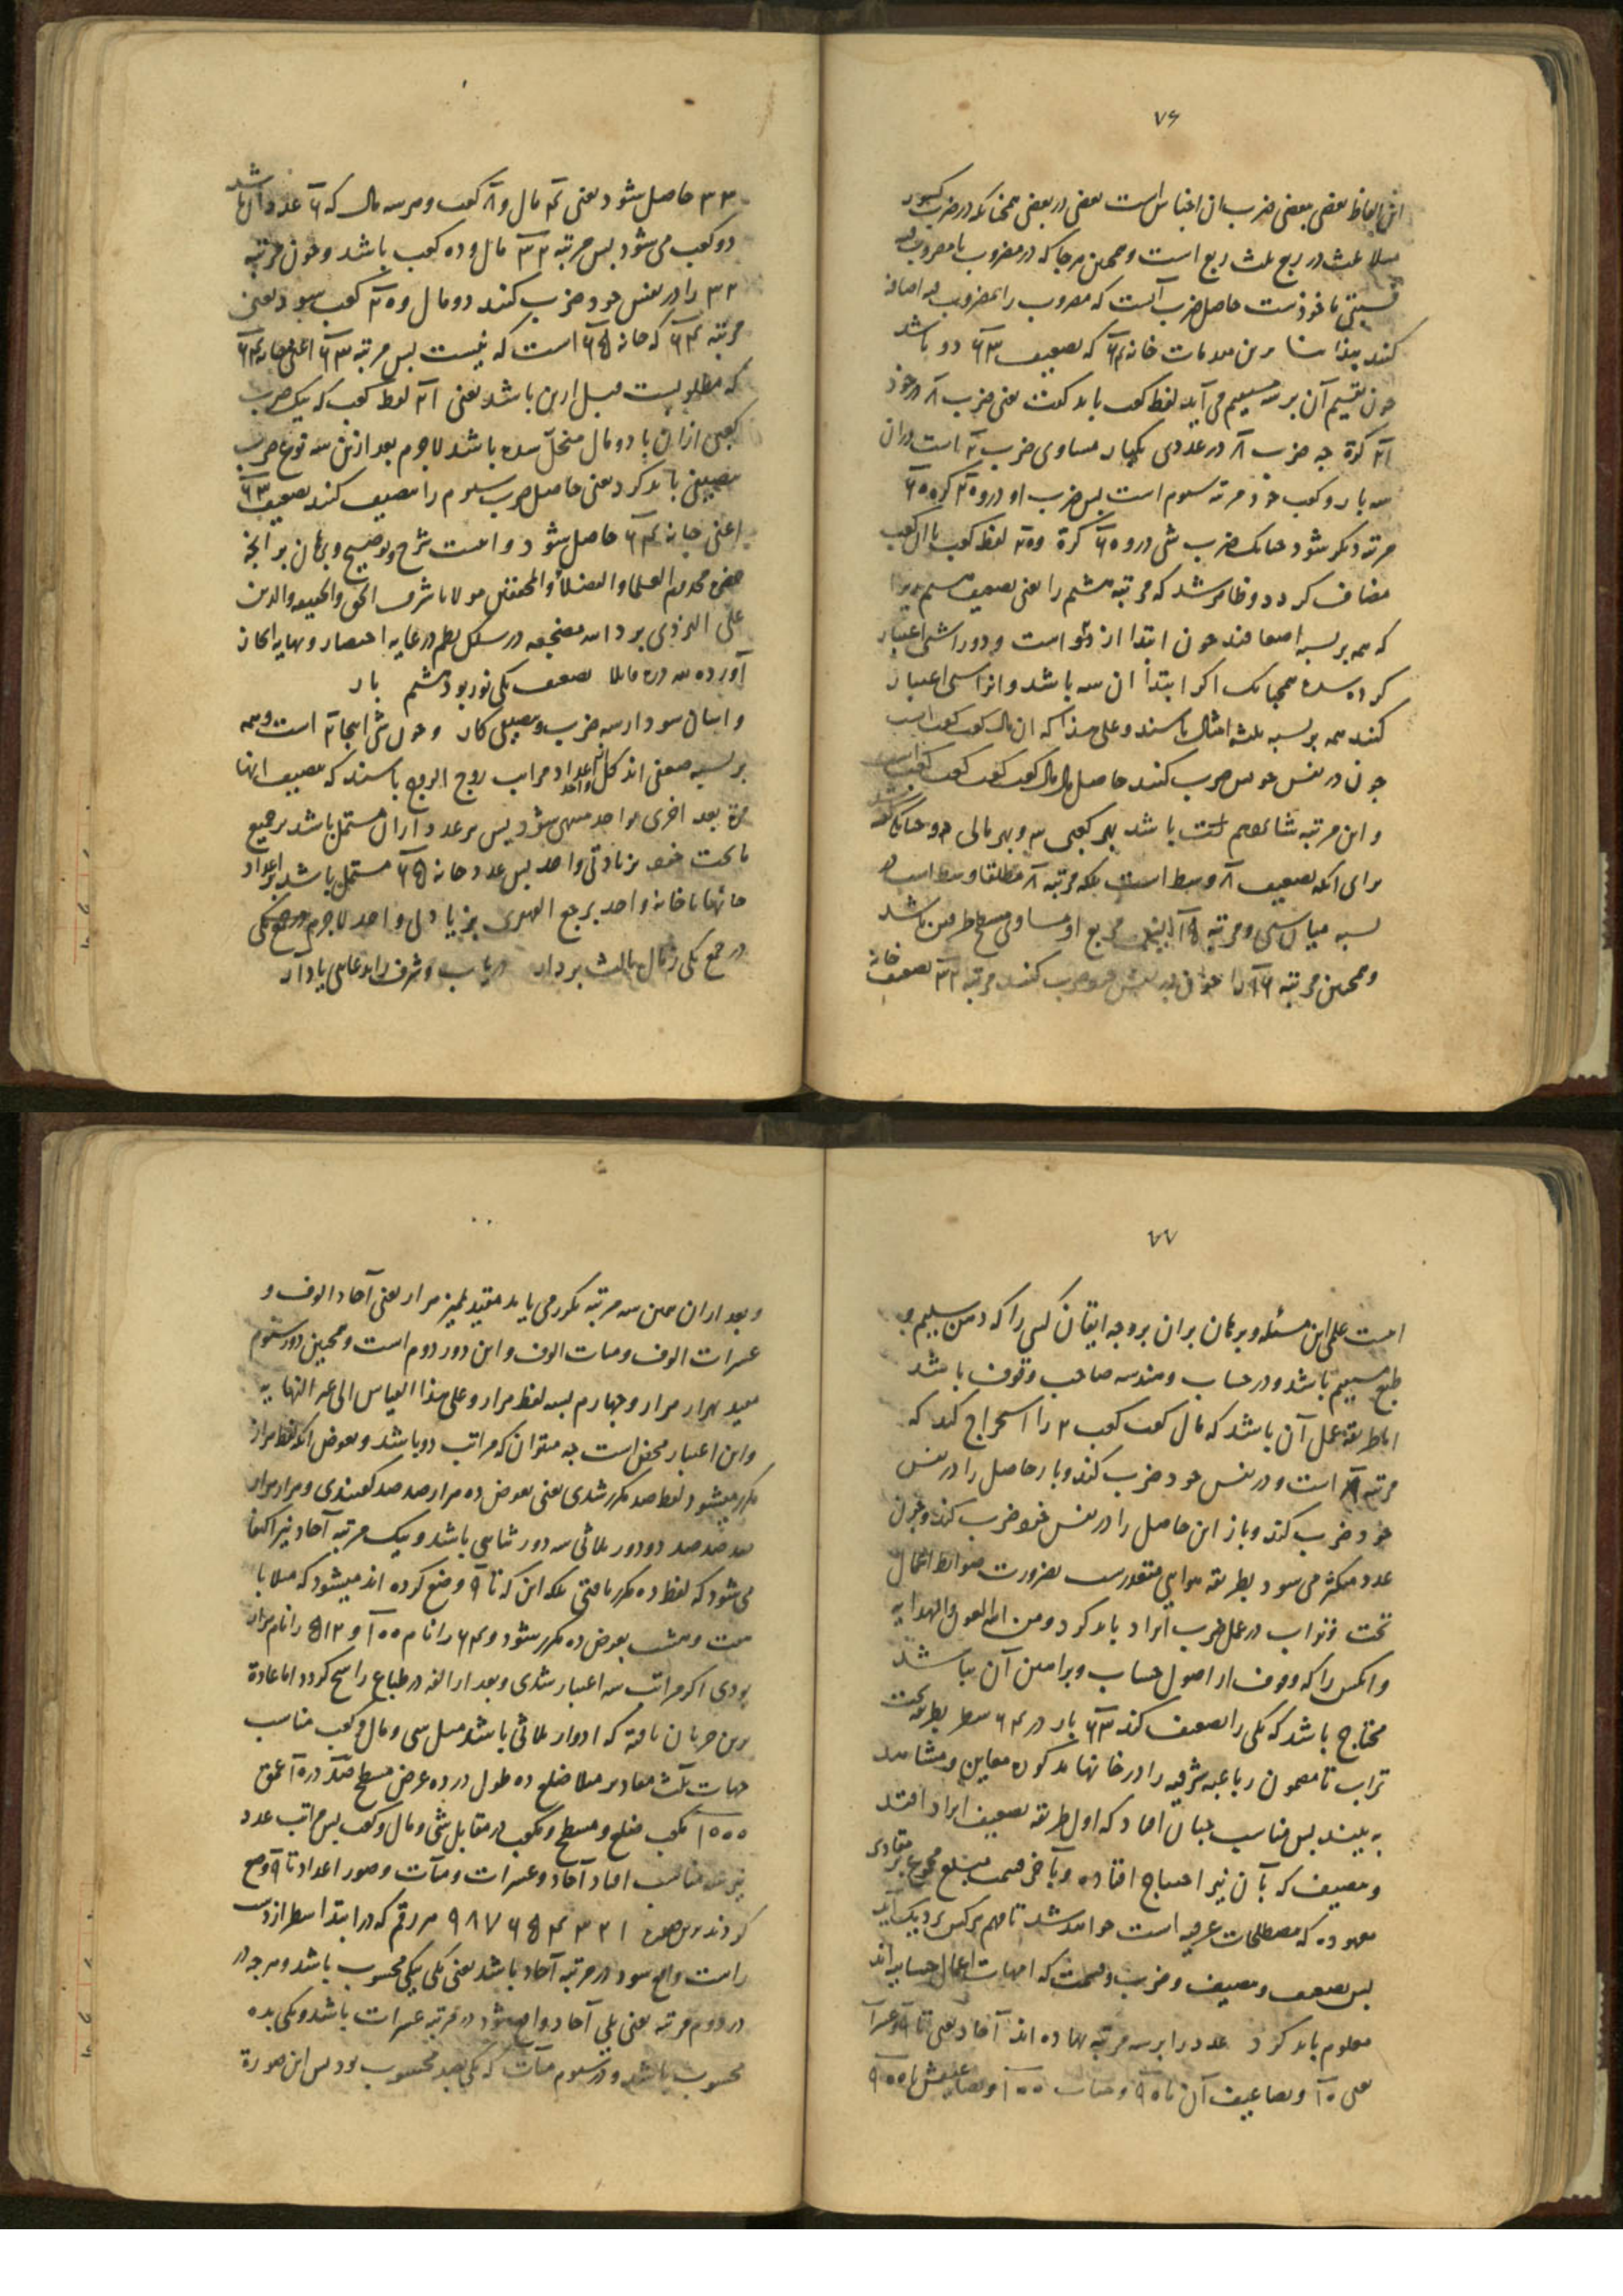 ۷۶
این الفاظ بعضی ببعضی ضرب ان اجناس است بعضی در بعضی همچنانکه در ضرب کسور
مثلا ثلث در ربع ثلث ربع است و همچنین هرجا که در مضروب یا مضروب فیه
نسبتی ماخوذست حاصل ضرب آنست که مضروب را بمضروب فیه اضافه
کنند بنا برین مقدمات خانه ۶۴ که تضعیف ۶۳ دو باشد
چون تقسیم آن بر سه مستقیم می آید لفظ کعب باید گفت یعنی ضرب ۸ در خود
۲۱ کرة چه ضرب ۸ در عددی یکبار مساوی ضرب ۲ است دران
سه بار و کعب خود مرتبه سیوم است پس ضرب او در
مرتبه دیگر شود چنانک ضرب شی در کرة لفظ کعب با آن کعب
مضاف کردد و ظاهر شد که مرتبه هشتم را یعنی تضعیف
که همه بر نسبه اضعافند چون ابتدا از دو است و دو را شی اعتبار
کرده شده همچنانک اکر ابتدا از سه باشد و انرا شی اعتبار
کنند همه بر نسبه ثلثه امثال باشند و علی هذا که ان مال کعب کعب است
چون در نفس خویش ضرب کنند حاصل مال مال کعب کعب کعب کعب است
و این مرتبه باشد بهر کعبی ۳ و بهر مالی ۲ و چنانک
برای آنکه تضعیف ۸ وسط است بلکه مرتبه ۸ مطلقا وسط است
نسبه میان شی و مرتبه مربع او مساوی مسطح طرفین باشد
و همچنین مرتبه ۱۶ را چون در نفس خود ضرب کنند مرتبه ۳۲ تضعیف خانه
۳۳ حاصل شود یعنی ۴ مال و ۸ کعب و هر سه مال که ۶ عدد آن باشد
دو کعب می شود پس مرتبه ۳۲ مال و ده کعب باشد و چون مرتبه
۳۲ را در نفس خود ضرب کنند دو مال و ۲۰ کعب شود یعنی
مرتبه ۶۴ که خانه ۶۵ است که نیست پس مرتبه ۶۳ اعنی خانه ۶۴
که مطلوبست قبل ازین باشد یعنی ۲۱ لفظ کعب که یک ضرب
کعبی ازان با دو مال منحل شده باشد لاجرم بعد ازین سه نوع ضرب
تنصیفی باید کرد یعنی حاصل ضرب سیوم را تنصیف کنند تضعیف ۶۳
اعنی خانه ۶۴ حاصل شود و اینست شرح و توضیح و برهان بر آنچه
حضرة مخدوم العلما و الفضلا و المحققین مولانا شرف الحق و الحقیقه و الدین
علی الیزدی برد الله مضجعه در سلک نظم در غایه اختصار و نهایه ایجاز
آورده لله دره قایلا تضعیف یکی نور بود هشتم بار
و اسان شود از سه ضرب و تنصیفی کار و چون شی اینجا ۲ است و همه
بر نسبه ضعفی اند کل واحد اعداد مراتب زوج الزوج باشند که تنصیف انها
مرة بعد اخری بواحد منتهی شود پس هر عدد از ان مشتمل باشد بر جمیع
ماتحت خود بزیادتی واحد پس عدد خانه ۶۵ مشتمل باشد بر اعداد
خانها تا خانه واحد برجع القهقری بزیادتی واحد لاجرم در جمع یکی
در جمع یکی ز مال ثالث بردار دریاب و شرف را بدعائی یاد آر
۷۷
اینست علم این مسئله و برهان بران بر وجه ایقان کسی را که ذهن سلیم و
طبع مستقیم باشد و در حساب و هندسه صاحب وقوف باشد
اما طریقه عمل آن باشد که مال کعب کعب ۲ را استخراج کند که
مرتبه ۸ است و در نفس خود ضرب کند و باز حاصل را در نفس
خود ضرب کند و باز این حاصل را در نفس خود ضرب کند و چون
عدد متکثر می شود بطریقه هوایی متعذرست بضرورت ضوابط اعمال
تخت و تراب در عمل ضرب ایراد باید کرد و من الله العون و الهدایه
و انکس را که وقوف از اصول حساب و براهین آن نباشد
محتاج باشد که یکی را تضعیف کند ۶۳ بار در ۶۴ سطر بطریقه تخت
تراب تا مضمون رباعیه شرفیه را در خانها مذکون معاین و مشاهد
به بیند پس مناسب چنان افتاد که اول طریقه تضعیف ایراد افتد
و تنصیف که بآن نیز احتیاج افتاده و بآخر قسمت مبلغ مجموع بر مقادیر
معهوده که مصطلحات عرفیه است خواهد شد تا بفهم هر کس نزدیک آید
پس تضعیف و تنصیف و ضرب و قسمت که امهات اعمال حسابیه اند
معلوم باید کرد عدد را بر سه مرتبه نهاده اند آحاد یعنی تا ۹ و عشرات
یعنی ۱۰ و تضاعیف آن تا ۹۰ و مئات ۱۰۰ و تضاعیفش تا ۹۰۰
و بعد ازان همین سه مرتبه مکرر می یابد مقید بمیز هزار یعنی آحاد الوف و
عشرات الوف و مئات الوف و این دور دوم است و همچنین دور سیوم
مقید بهزار هزار و چهارم بسه لفظ هزار و علی هذا القیاس الی غیر النهایه
و این اعتبار محض است چه میتوان که مراتب دو باشد و بعوض آنکه لفظ هزار
مکرر میشود لفظ صد مکرر شدی یعنی بعوض ده هزار صد صد گفتندی و هزار هزار
صد صد صد دو دور ثلاثی سه دور ثنایی باشد و بیک مرتبه آحاد نیز اکتفا
می شود که لفظ ده مکرر یافتی بلکه این که تا ۹ وضع کرده اند میشود که مثلا با
هفت و هشت بعوض ده مکرر شود و ۶۴ را نام ۱۰۰ و ۵۱۲ را نام هزار
بودی اکر مراتب سه اعتبار شدی و بعد از الفه در طباع راسخ کردد اما عادة
برین جریان یافته که ادوار ثلاثی باشد مثل شی و مال و کعب مناسب
جهات ثلث مقادیر مثلا ضلع ده طول در ده عرض مسطح صد در ۱۰ عمق
۱۰۰۰ مکعب ضلع و مسطح و مکعب در مقابل شی و مال و کعب پس مراتب عدد
نیز سه مناسب افتاد آحاد و عشرات و مآت و صور اعداد تا ۹ وضع
کردند برین صورة ۱ ۲ ۳ ۴ ۵ ۶ ۷ ۸ ۹ هر رقم که در ابتدا سطر از دست
راست واقع شود در مرتبه آحاد باشد یعنی یکی بیکی محسوب باشد و هرچه در
در دوم مرتبه یعنی یلی آحاد واقع شود در مرتبه عشرات باشد و یکی بده
محسوب باشد و در سیوم مآت که یکی بصد محسوب بود پس این صورة